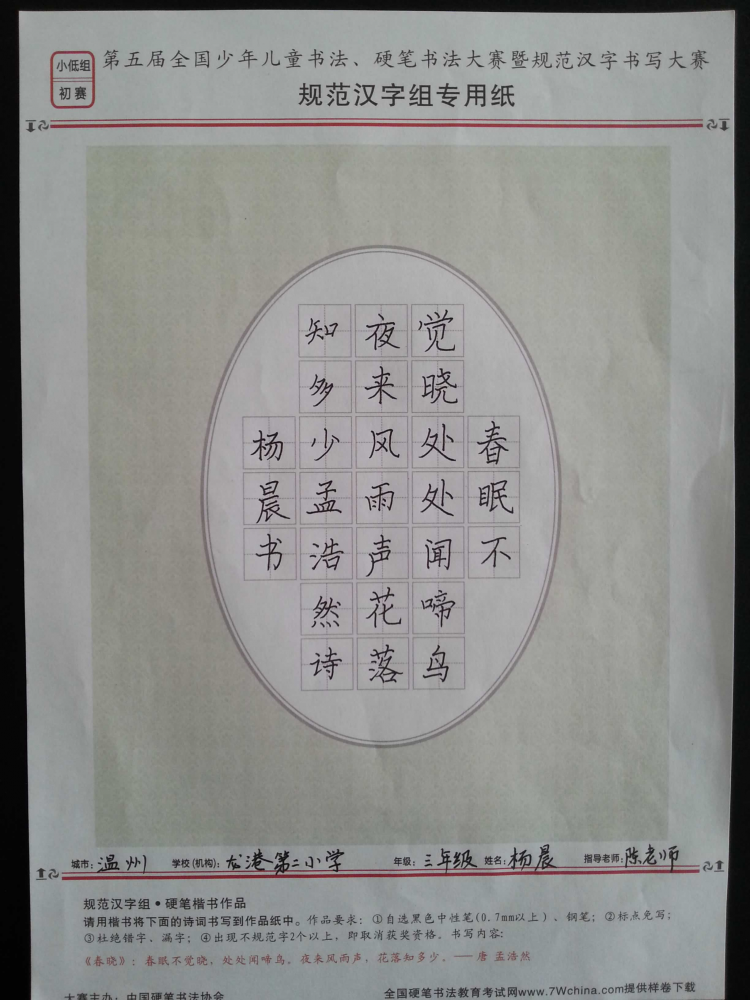 小低组
初赛
第五届全国少年儿童书法、硬笔书法大赛暨规范汉字书写大赛
规范汉字组专用纸
春眠不
觉晓处处闻啼鸟
夜来风雨声花落
知多少孟浩然诗
杨晨书
城市：温州 学校(机构)：龙港第二小学 年级：三年级 姓名：杨晨 指导老师：陈老师
规范汉字组•硬笔楷书作品
请用楷书将下面的诗词书写到作品纸中。作品要求：①自选黑色中性笔(0.7mm以上)、钢笔；②标点免写；
③杜绝错字、漏字；④出现不规范字2个以上，即取消获奖资格。书写内容：
《春晓》：春眠不觉晓，处处闻啼鸟。夜来风雨声，花落知多少。——唐 孟浩然
大赛主办：中国硬笔书法协会 全国硬笔书法教育考试网www.7Wchina.com提供样卷下载